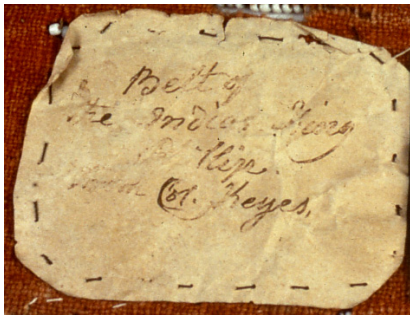 Belt of
the Indian King
Philip.
from Col. Keyes.